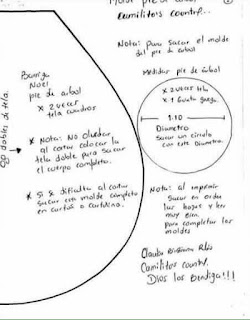 Molde pie de
Camilitos country..
Nota: para sacar el molde
del pie de árbol
Medidas pie de árbol
x 2 veces tela
x 1 guata
1.10
Diametro
Sacar un circulo
con este Diametro.
Barriga
Noel
pie de arbol
x 2 veces
tela cuadros
doblez de tela.
x Nota: No olvidar
al cortar colocar la
tela doble para sacar
el cuerpo completo.
x Si se dificulta al cortar
sacar este molde completo
en carton o cartulina.
Nota: al imprimir
sacar en orden
las hojas y leer
muy bien.
para completar los
moldes
Claudia
Camilitos country.
Dios los bendiga!!!